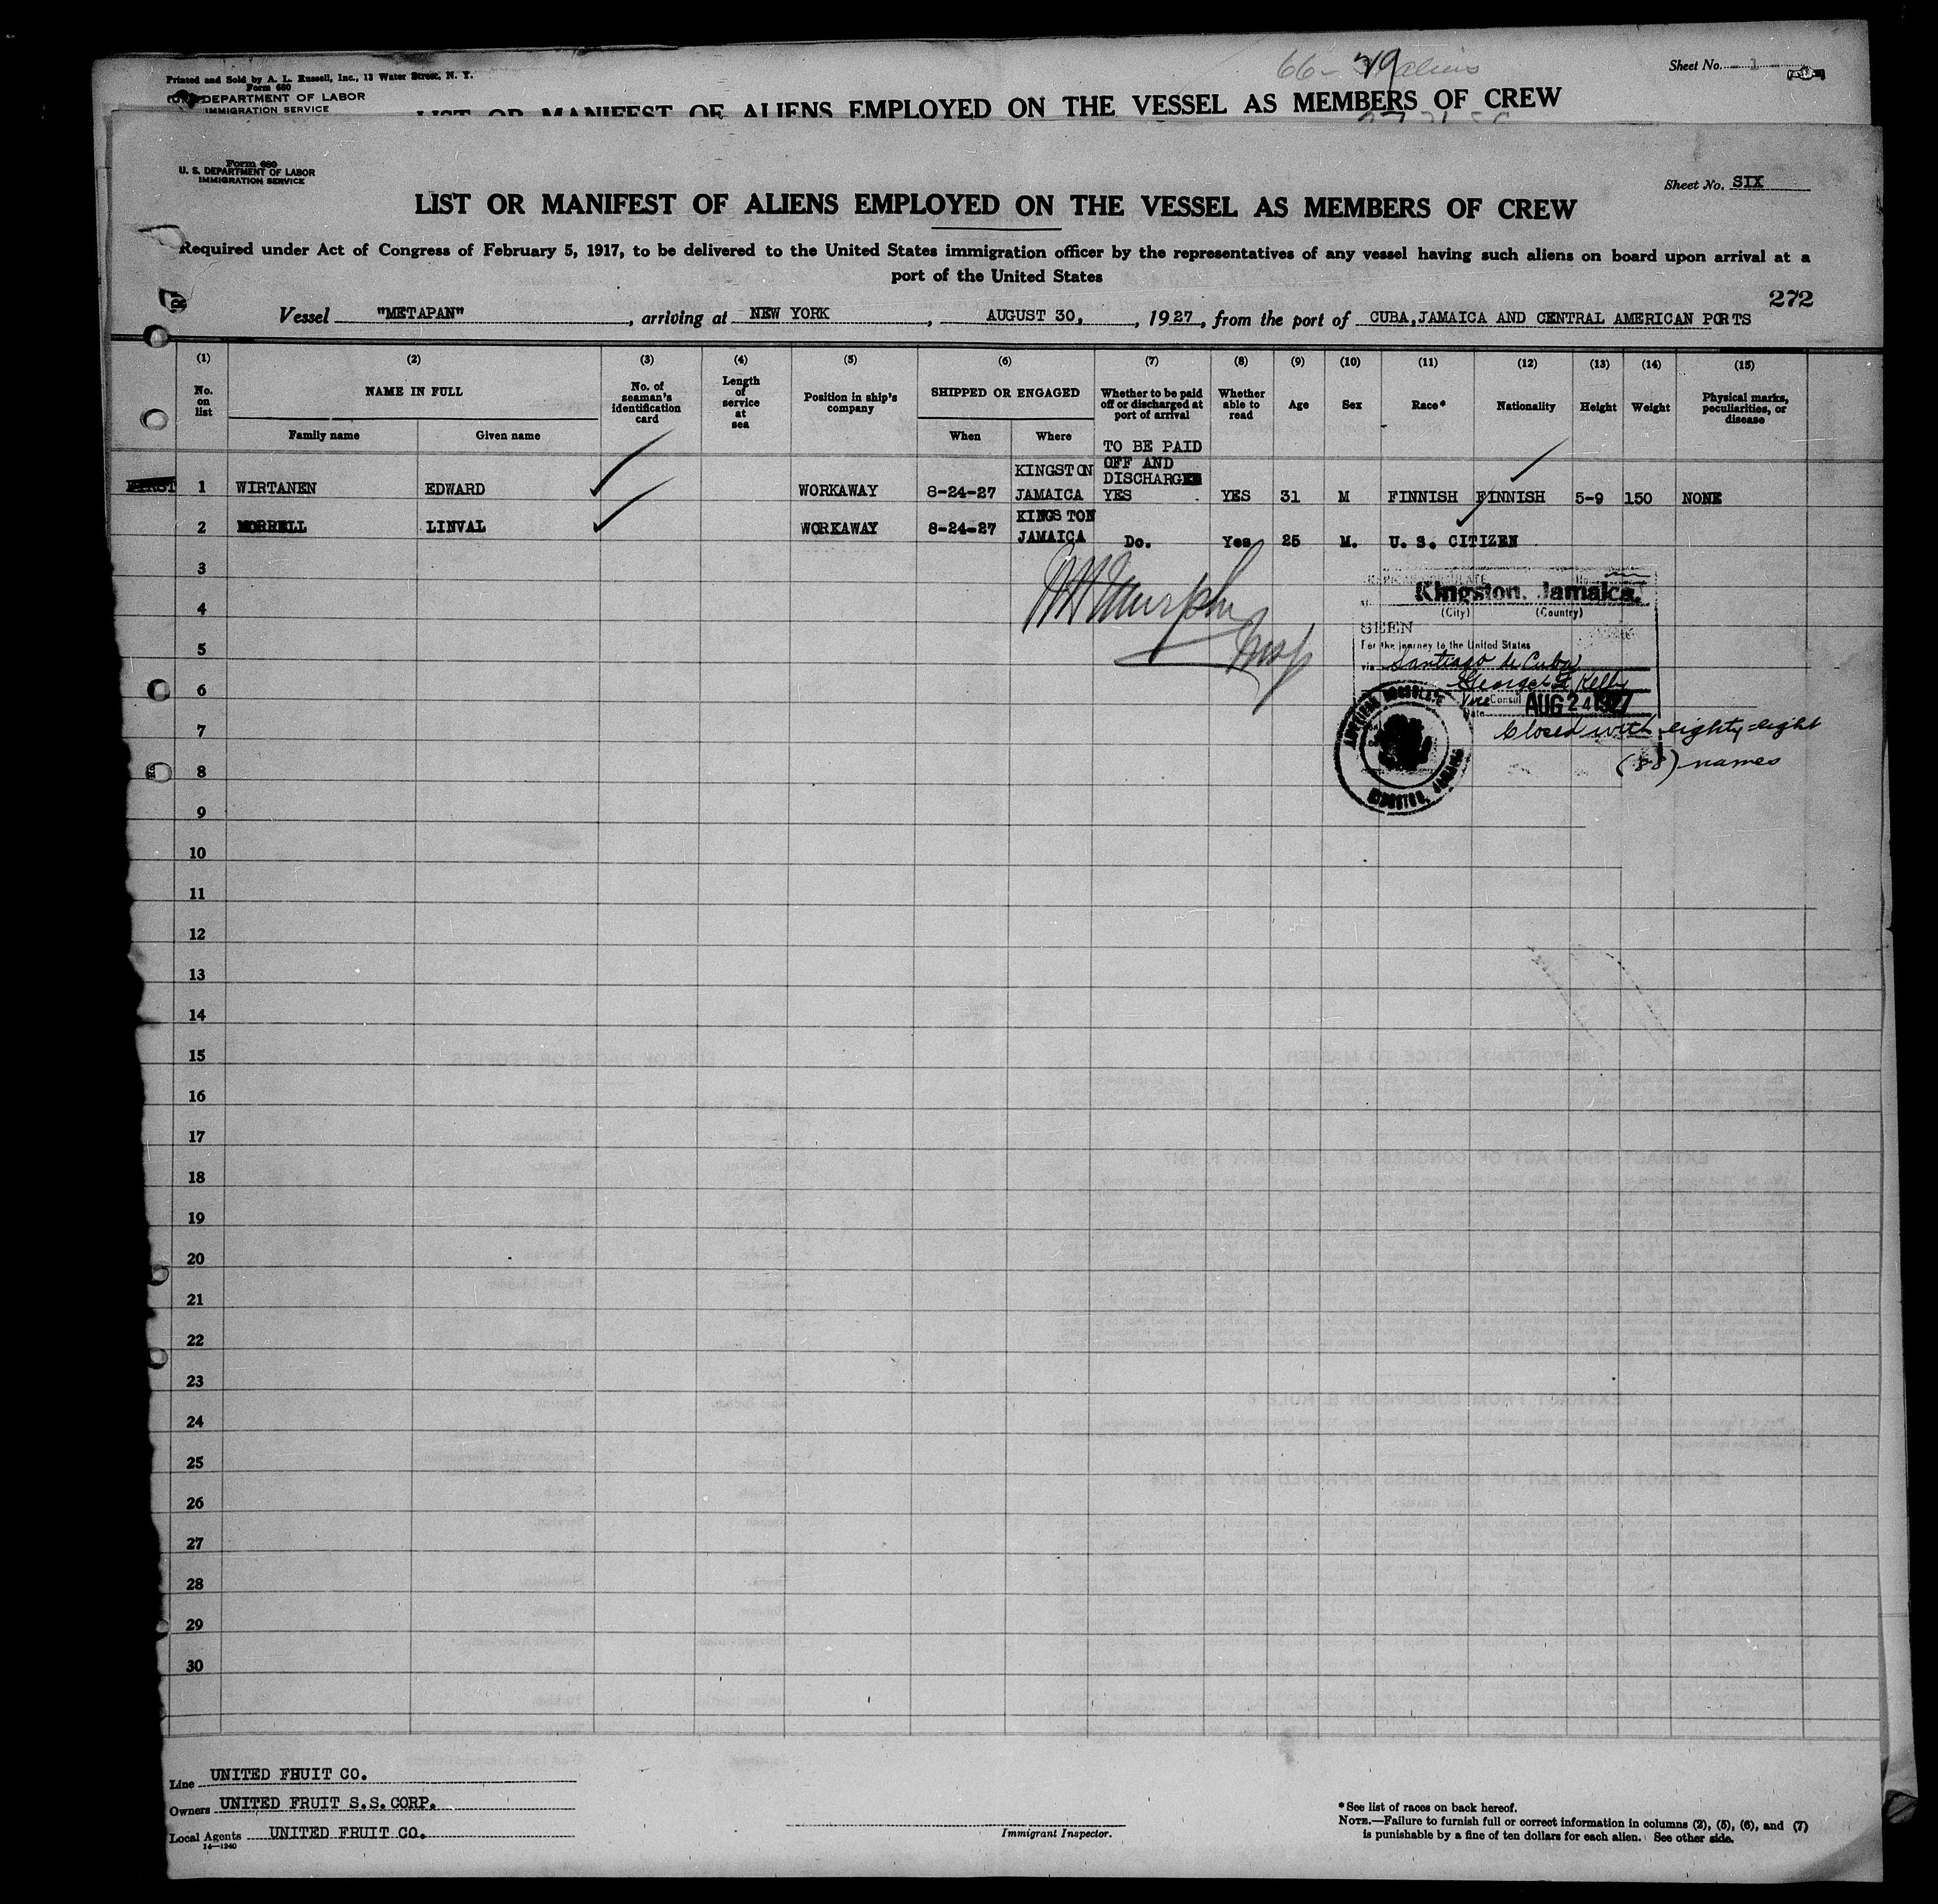 Printed and Sold by A. L. Russell, Inc., 13 Water Street, N. Y.
Form 680
DEPARTMENT OF LABOR
IMMIGRATION SERVICE
66-
Sheet No. 1
LIST OR MANIFEST OF ALIENS EMPLOYED ON THE VESSEL AS MEMBERS OF CREW
Form 680
U. S. DEPARTMENT OF LABOR
IMMIGRATION SERVICE
Sheet No. SIX
LIST OR MANIFEST OF ALIENS EMPLOYED ON THE VESSEL AS MEMBERS OF CREW
Required under Act of Congress of February 5, 1917, to be delivered to the United States immigration officer by the representatives of any vessel having such aliens on board upon arrival at a
port of the United States
272
Vessel "METAPAN", arriving at NEW YORK, AUGUST 30, 1927, from the port of CUBA,JAMAICA AND CENTRAL AMERICAN PORTS
(1) (2) (3) (4) (5) (6) (7) (8) (9) (10) (11) (12) (13) (14) (15)
No. on list
NAME IN FULL
Family name
Given name
No. of seaman's identification card
Length of service at sea
Position in ship's company
SHIPPED OR ENGAGED
When
Where
Whether to be paid off or discharged at port of arrival
Whether able to read
Age
Sex
Race*
Nationality
Height
Weight
Physical marks, peculiarities, or disease
TO BE PAID
OFF AND
DISCHARGED
FIRST 1 WIRTANEN EDWARD WORKAWAY 8-24-27 KINGSTON JAMAICA YES YES 31 M FINNISH FINNISH 5-9 150 NONE
2 MORRELL LINVAL WORKAWAY 8-24-27 KINGSTON JAMAICA Do. Yes 25 M. U. S. CITIZEN
3
4
5
6
7
8
9
10
11
12
13
14
15
16
17
18
19
20
21
22
23
24
25
26
27
28
29
30
Murphy
Insp
Kingston, Jamaica.
(City) (Country)
SEEN
For the journey to the United States
via Santiago de Cuba
George Kelly
Vice Consul
Date AUG 24 1927
AMERICAN CONSULATE
KINGSTON, JAMAICA
Closed with eighty-eight
(88) names
Line UNITED FRUIT CO.
Owners UNITED FRUIT S.S. CORP.
Local Agents UNITED FRUIT CO.
14—1240
Immigrant Inspector.
*See list of races on back hereof.
NOTE.—Failure to furnish full or correct information in columns (2), (5), (6), and (7)
is punishable by a fine of ten dollars for each alien. See other side.